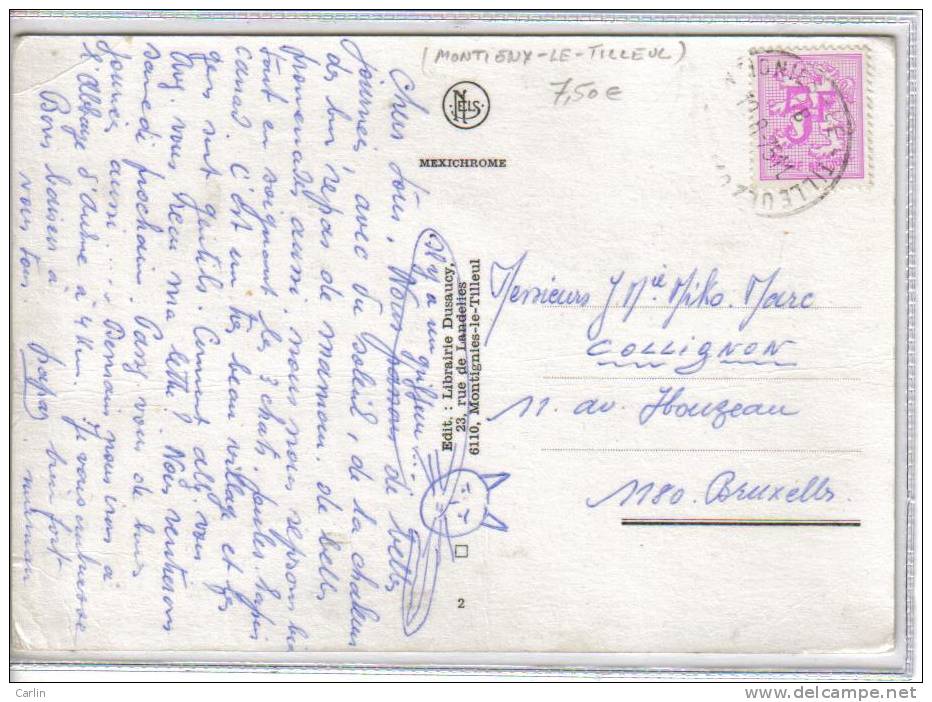 (MONTIGNY-LE-TILLEUL)
7,50€
NELS
MEXICHROME
Chers tous,
Nous passons de belles
journées, avec du soleil, de la chaleur
de bons repas de maman, de belles
promenades aussi. nous nous reposons bien
tout en soignant les 3 chats, poules, lapins
canard. C'est un très beau village et les
gens sont gentils. Comment allez vous
Avez vous reçu ma lettre. Nous rentrerons
samedi prochain. Passez vous de bonnes
journées aussi.... Demain nous irons à
l'abbaye d'aulne à 4 km. Je vous embrasse
Bons baisers à bien fort
vous tous. papa, maman
Il y a un griffeur...
Edit. : Librairie Dusaucy,
23, rue de Landelies
6110, Montignies-le-Tilleul
2
Messieurs J Mie Miko. Marc
COLLIGNON
11. av. Houzeau
1180. Bruxelles.
5F
TILLEUL
Carlin
www.delcampe.net